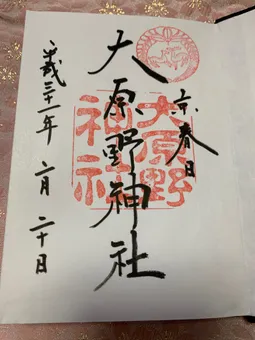 京春日
大原野神社
大原野
神社
平成三十一年 月 二十日